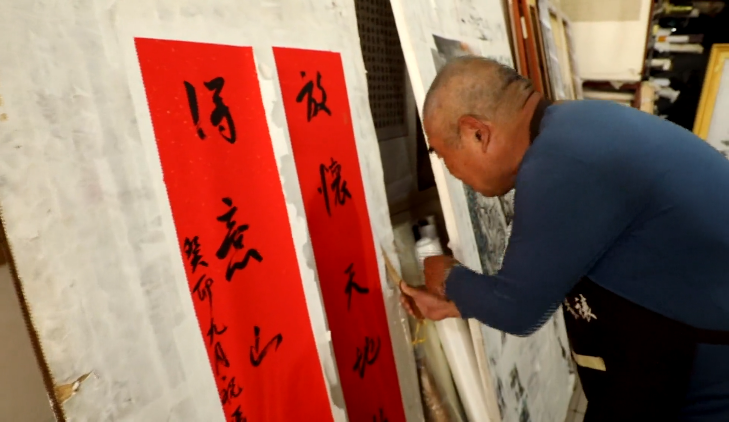 放懷天地
得意山
癸卯九月